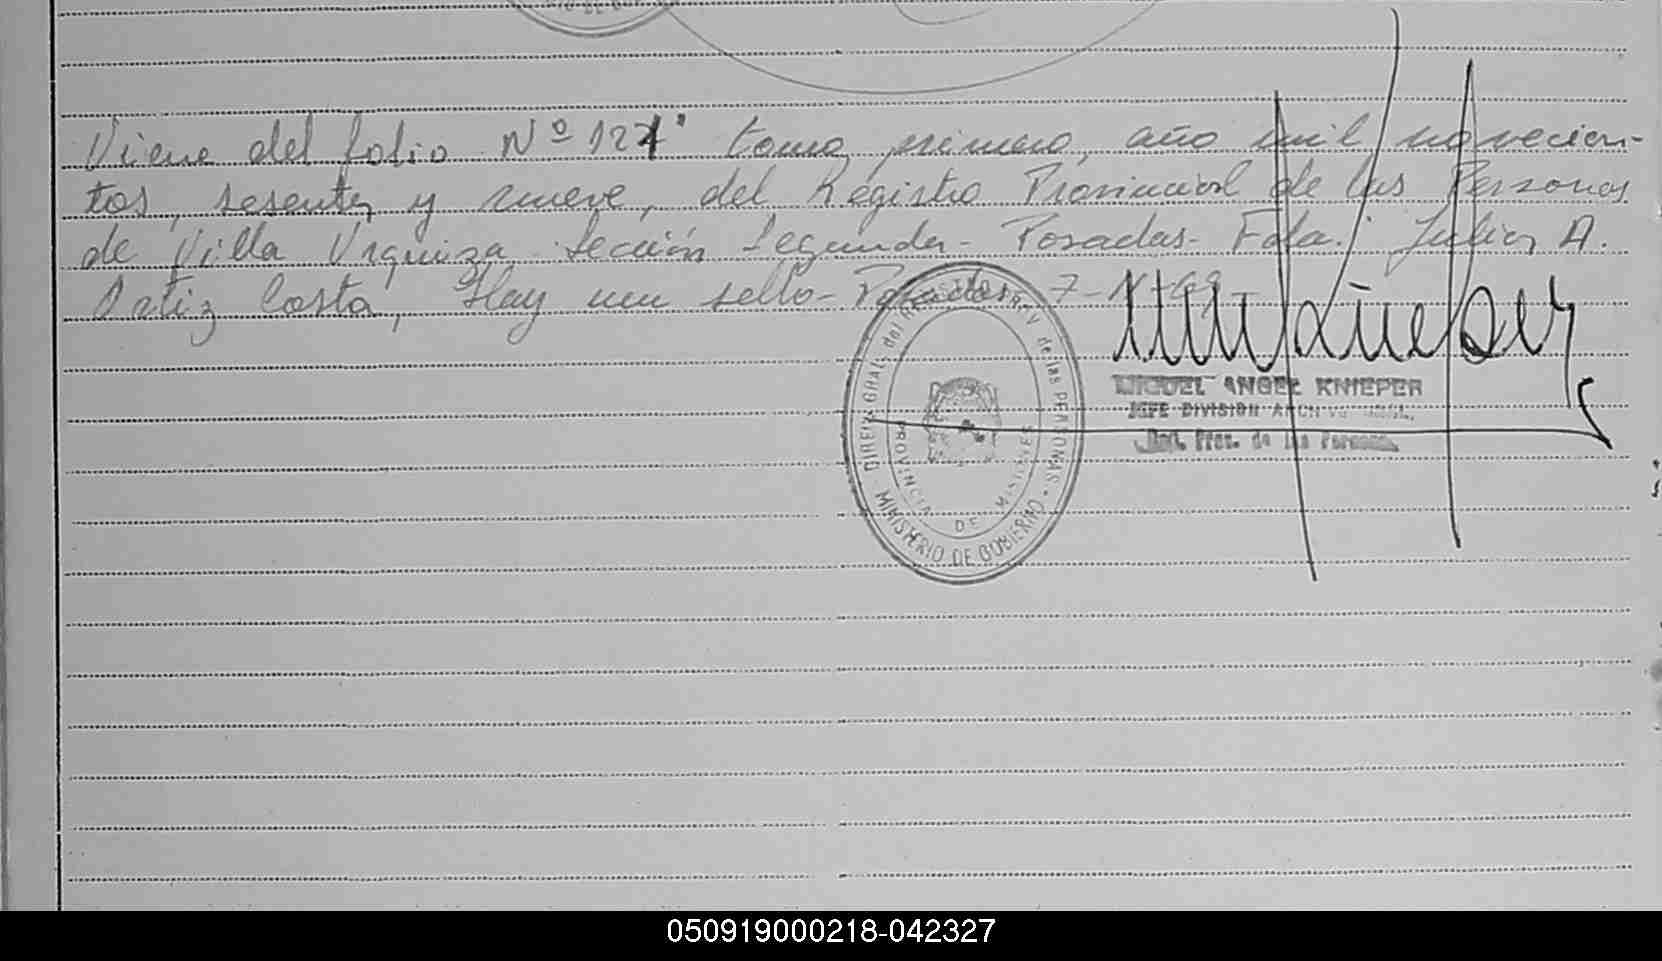 Viene del folio Nº 121 tomo primero, año mil novecien-
tos, sesenta y nueve, del Registro Provincial de las Personas
de Villa Urquiza Sección Segunda - Posadas - Fdo. Julia A.
Ortiz Costa, Hay un sello - Posadas, 7-V-69 -
DIREC. GRAL. del REGISTRO PROV. de las PERSONAS
PROVINCIA DE MISIONES
MINISTERIO DE GOBIERNO
MIGUEL ANGEL KNIEPER
JEFE DIVISION ARCHIVO GRAL.
Prov. de las Personas
050919000218-042327